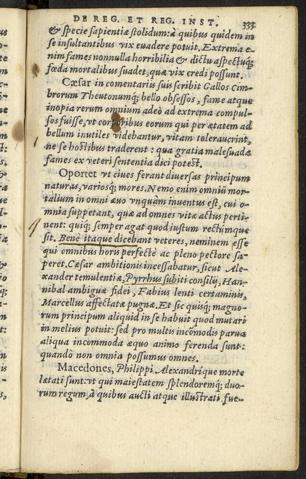 DE REG. ET REG. INST. 333
& specie sapientiæ stolidum: à quibus quidem in
se insultantibus vix euadere potuit. Extrema e-
nim fames nonnulla horribilia & dictu aspectuq́;
fœda mortalibus suadet, quæ vix credi possunt.
Cæsar in comentariis suis scribit Gallos Cim-
brorum Theutonumq́; bello obsessos, fame atque
inopia rerum omnium adeò ad extrema compul-
sos fuisse, vt corporibus eorum qui per ætatem ad
bellum inutiles videbantur, vitam tolerauerint,
ne se hostibus traderent: qua gratia malesuada
fames ex veteri sententia dici potest.
Oportet vt ciues ferant diuersas principum
naturas, variosq́; mores. Nemo enim omniũ mor-
talium in omni æuo vnquàm inuentus est, cui o-
mnia suppetant, quæ ad omnes vitæ actus perti-
nent: quiq́; semper agat quod iustum rectumque
sit. Bene itaque dicebant veteres, neminem esse
qui omnibus horis perfectè ac pleno pectore sa-
peret. Cæsar ambitionis incessabatur, sicut Ale-
xander temulentiæ, Pyrrhus subiti consilij, Han-
nibal ambiguæ fidei, Fabius lenti certaminis,
Marcellus affectatæ pugnæ. Et sic quisq́; magno-
rum principum aliquid in se habuit quod mutari
in melius potuit: sed pro multis incõmodis parua
aliqua incommoda æquo animo ferenda sunt:
quando non omnia possumus omnes.
Macedones, Philippi Alexandrique morte
lætati sunt: vt qui maiestatem splendoremq́; duo-
rum regum, à quibus aucti atque illustrati fue-